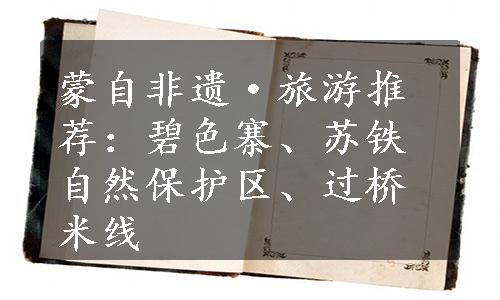 蒙自非遗·旅游推
荐：碧色寨、苏铁
自然保护区、过桥
米线